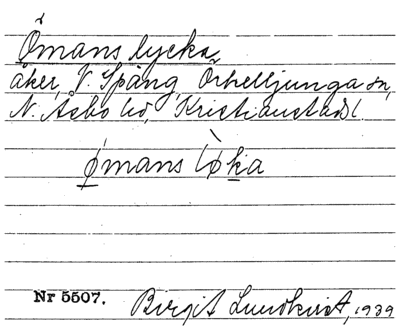 Ömans lycka,
åker, V. Spång, Örkelljunga sn,
N. Åsbo hd, Kristianstads l.
ømans løka
Nr 5507. Birgit Lundkvist, 1939